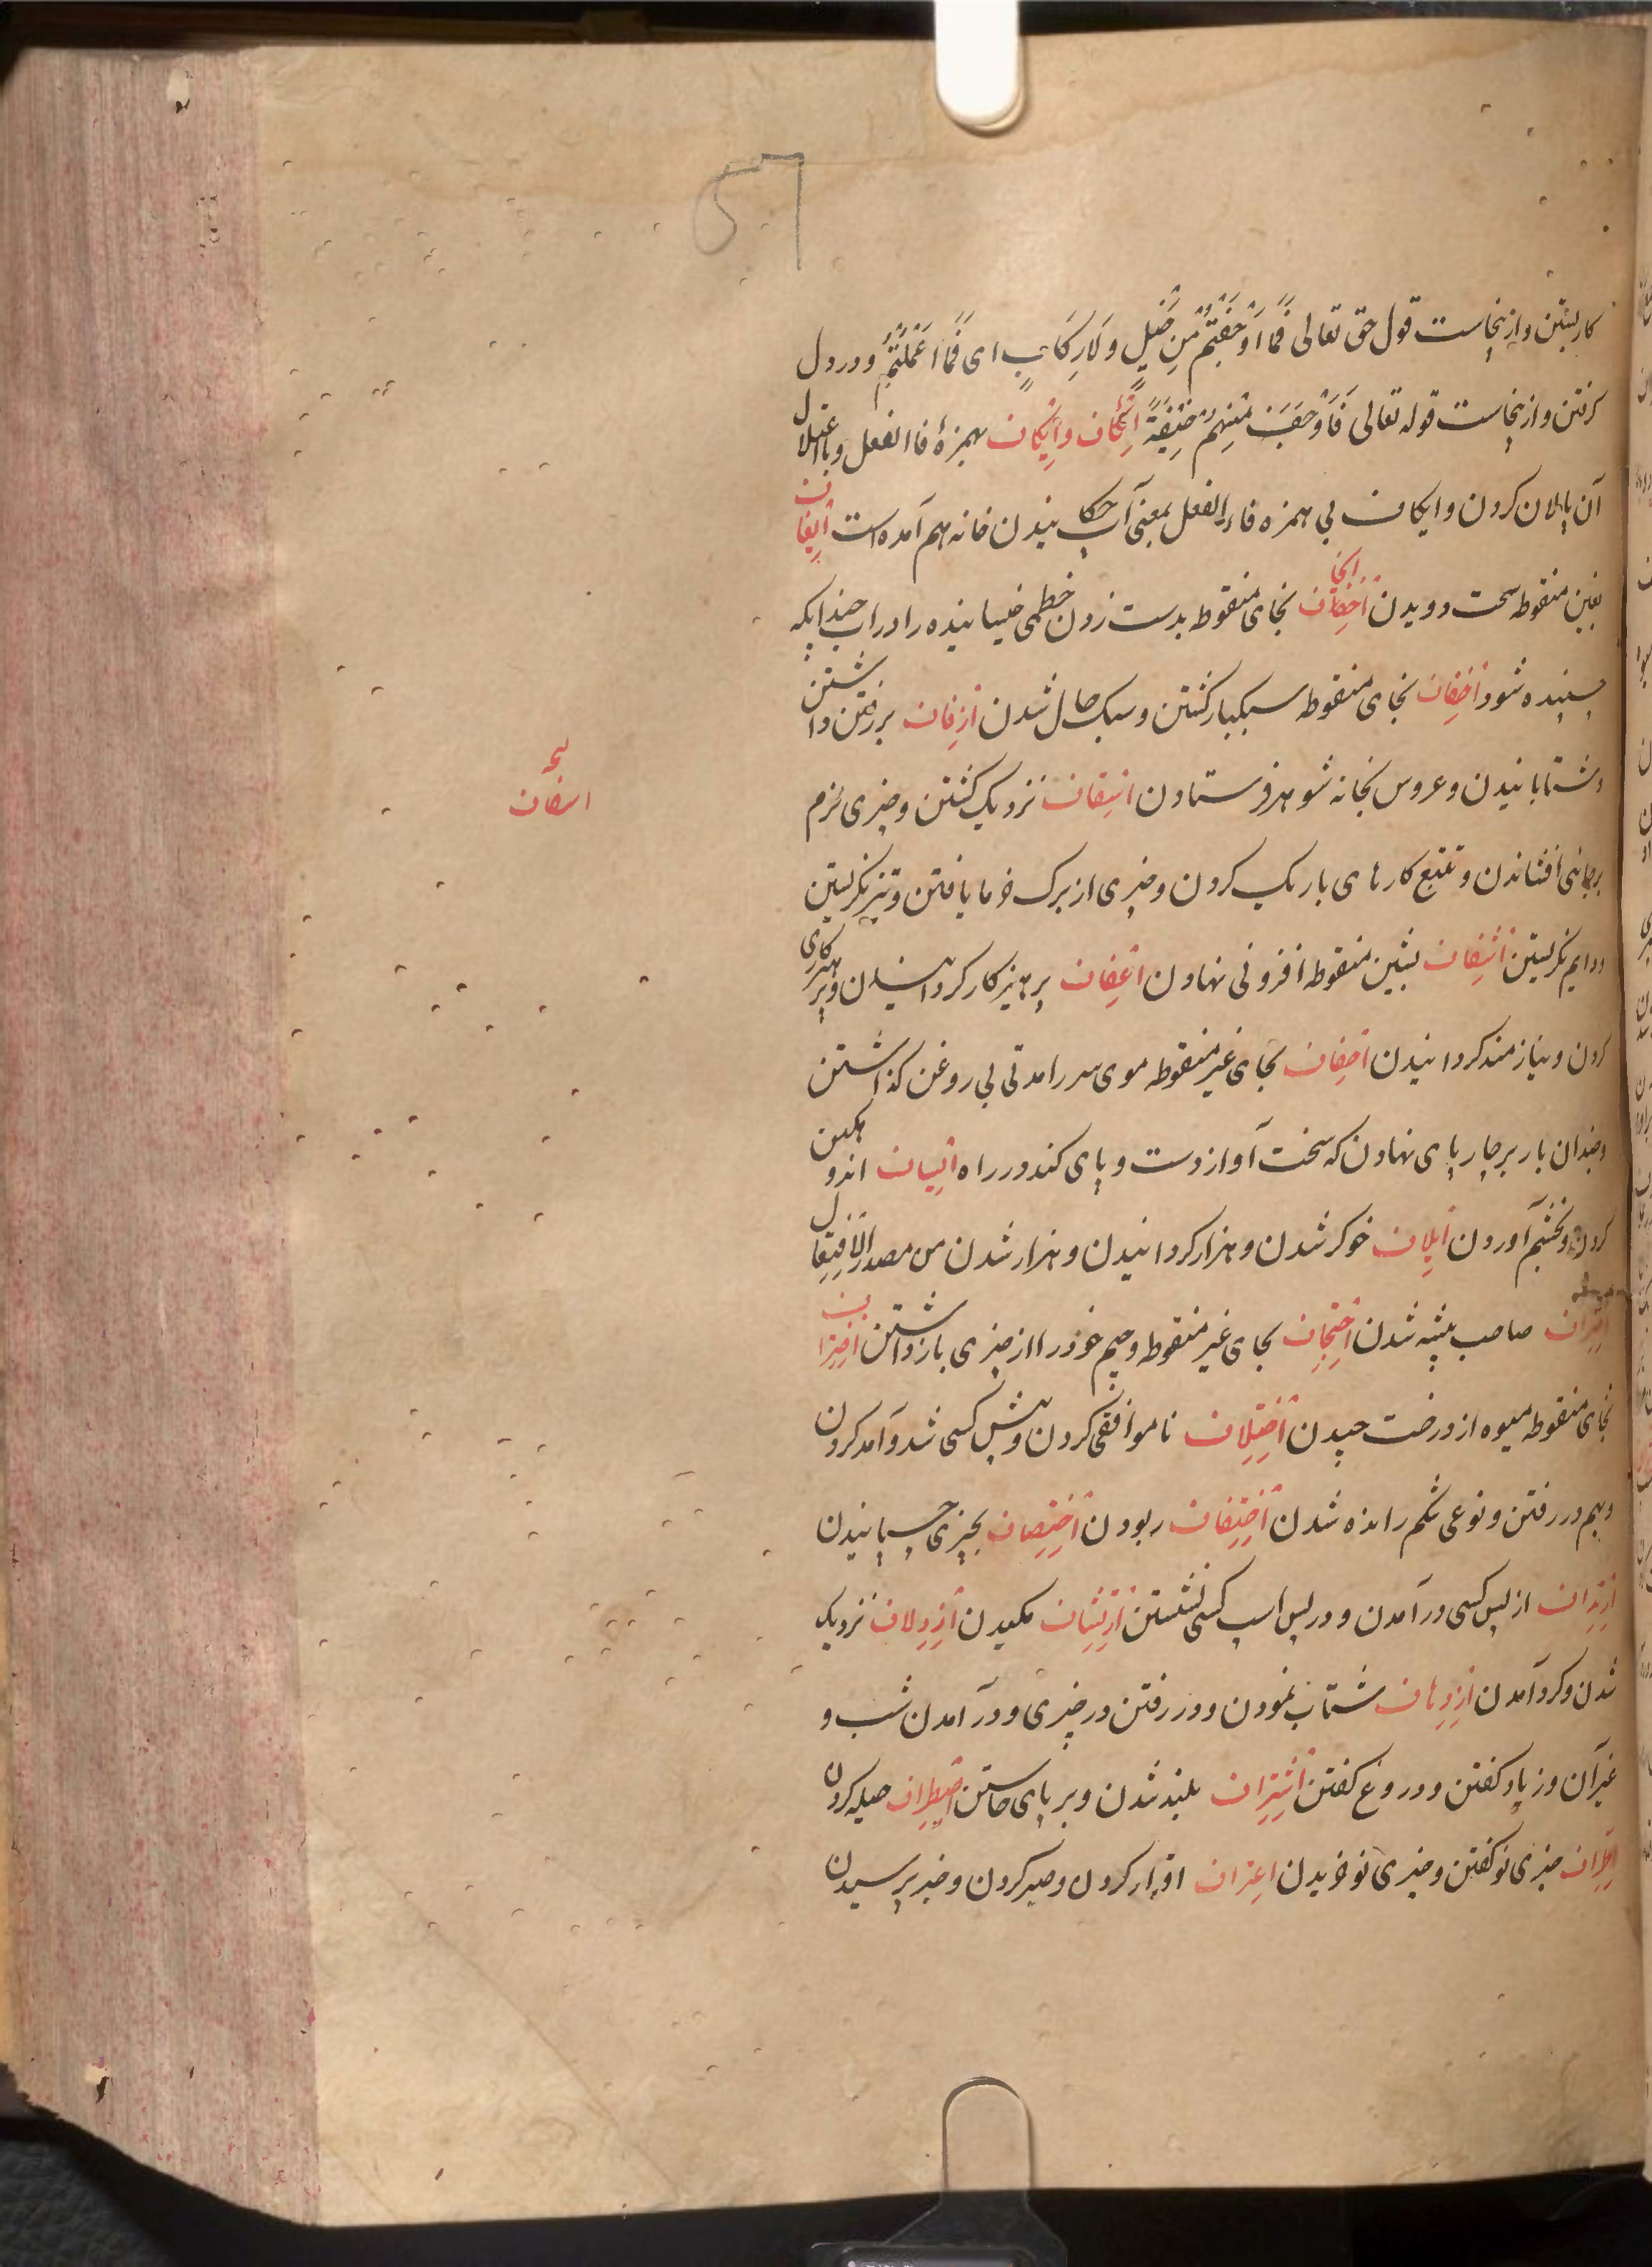 کار بستن و ازینجاست قول حق تعالی فَمَا اَوْجَفْتُمْ مِنْ خَيْلٍ وَلَا رِكَابٍ ای فَمَا اَعْمَلْتُمْ و در دل
کرفتن و ازینجاست قوله تعالی فَاَوْجَفَ مِنْهُمْ خِيفَةً اِئکاف و ایکاف بهمزۀ فاء الفعل و باعتلال
آن پالان کردن و ایکاف بی همزه فاء الفعل بمعنی آب چکانیدن خانه هم آمده است ایغاف
بغین منقوطه سخت دویدن اخفاف بخای منقوطه بدست زدن خطمی خیسانیده را در اب چندانکه
چسپنده شود اخفاف بخای منقوطه سبکبار کشتن و سبک حال شدن ازفاف بر رفتن داشتن
و شتابانیدن و عروس بخانه شوهر فرستادن اسفاف نزدیک کشتن و چیزی نرم
اسفاف
بر جائی افشاندن و تتبع کارهای باریک کردن و چیزی از برک خرما بافتن و تیز نکریستن
و دایم نکریستن اشفاف بشین منقوطه افزونی نهادن اعفاف پرهیزکار کردانیدن و پرهیزکاری
کردن و نیازمند کردانیدن احفاف بحای غیر منقوطه موی سر را مدتی بی روغن کذاشتن
و چندان بار بر چارپای نهادن که سخت آواز دست و پای کند در راه ایساف اندوهکین
کردن و بخشم آوردن ایلاف خوکر شدن و هزار کردانیدن و هزار شدن من مصدر الافتعال
صاحب پیشه شدن احتجاف بحای غیر منقوطه و جیم خود را از چیزی باز داشتن اختراف
بخای منقوطه میوه از درخت چیدن اختلاف ناموافقی کردن و پیش کسی شد و آمد کردن
و بهم در رفتن و نوعی شکم رانده شدن اختطاف ربودن اختصاف بچیزی چسپانیدن
ارتداف از پس کسی در آمدن و در پس اسپ کسی نشستن ارتشاف مکیدن ازدلاف نزدیک
شدن و کرد آمدن ازدهاف شتاب نمودن و در رفتن در چیزی و در آمدن شب و
غیر آن و زیاد کفتن و دروغ کفتن اشتراف بلند شدن و بر پای خاستن اصطراف حیله کردن
اطراف چیزی نو کفتن و چیزی نو خریدن اعتراف اقرار کردن و صبر کردن و خبر پرسیدن